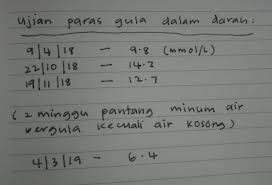 Ujian paras gula dalam darah:
9|4|18 — 9.8 (mmol/L)
22|10|18 — 14.2
19|11|18 — 12.7
(2 minggu pantang minum air
bergula kecuali air kosong)
4|3|19 — 6.4